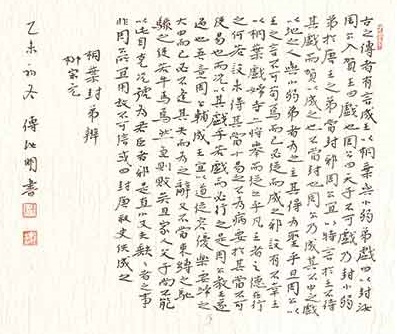 古之傳者有言成王以桐葉與小弱弟戲曰以封汝
周公入賀王曰戲也周公曰天子不可戲乃封小弱
弟於唐王之弟當封邪周公宜以時言於王不待
其戲而賀以成之也不當封邪周公乃成其不中之戲
以地以人與小弱弟者為之主其得為聖乎且周公以
王之言不可苟焉而已必從而成之邪設有不幸王
以桐葉戲婦寺亦將舉而從之乎凡王者之德在行
之何若設未得其當雖十易之不為病要於其當不可
使易也而況以其戲乎若戲而必行之是周公教王遂
過也吾意周公輔成王宜以道從容優樂要歸之
大中而已必不逢其失而為之辭又不當束縛之馳
驟之使若牛馬然急則敗矣且家人父子尚不能
以此自克況號為君臣者邪是直小丈夫缺缺者之事
非周公所宜用故不可信或曰封唐叔史佚成之
桐葉封弟辨
柳宗元
乙未初冬 傅如明書